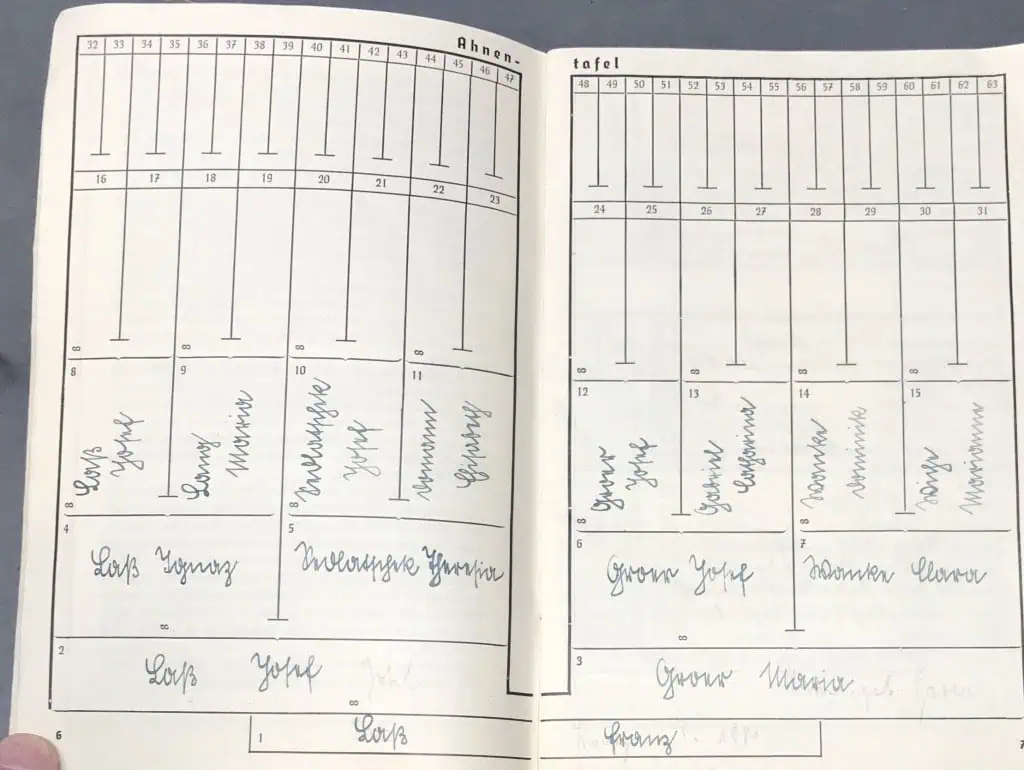 Ahnen-
tafel
32 33 34 35 36 37 38 39 40 41 42 43 44 45 46 47
48 49 50 51 52 53 54 55 56 57 58 59 60 61 62 63
16 17 18 19 20 21 22 23
24 25 26 27 28 29 30 31
∞ ∞ ∞ ∞
∞ ∞ ∞
8 Laß Josef
9 Lang Maria
10 Sedlatschek Josef
11
12 Groer Josef
13 Gabriel Catharina
14 Wanke Dominik
15 Marianne
∞ ∞
∞ ∞
4 Laß Ignaz
5 Sedlatschek Theresia
6 Groer Josef
7 Wanke Clara
∞
∞
2 Laß Josef
3 Groer Maria
∞
1 Laß Franz
6
7